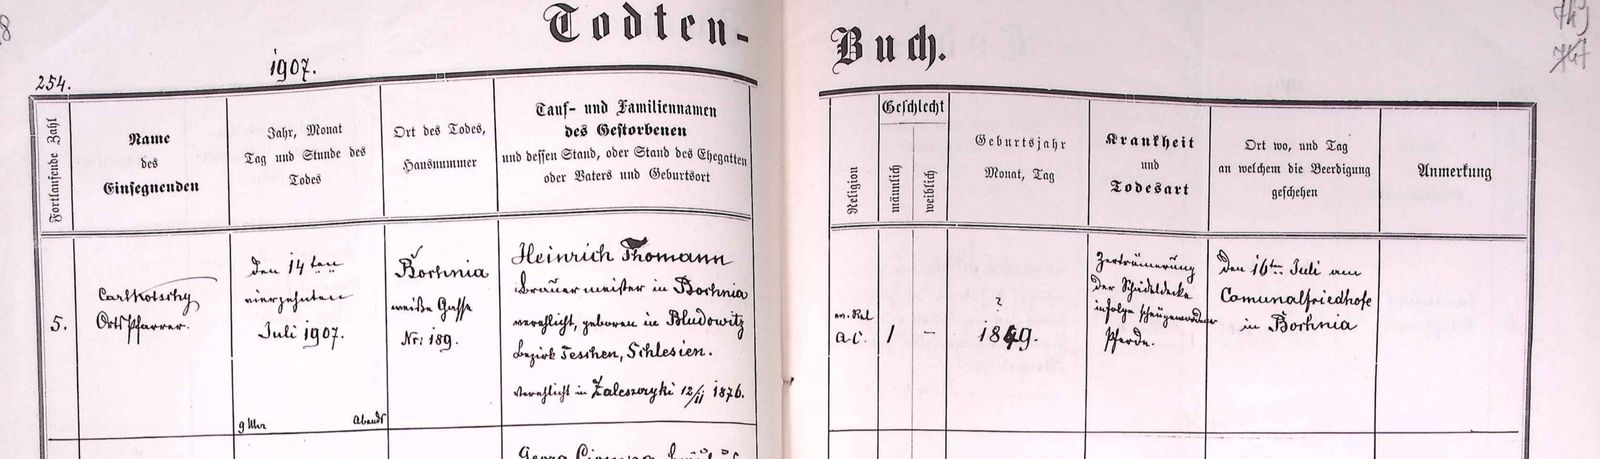 Todten-
Buch.
1907.
254.
Fortlaufende Zahl
Name
des
Einsegnenden
Jahr, Monat
Tag und Stunde des
Todes
Ort des Todes,
Hausnummer
Tauf- und Familiennamen
des Gestorbenen
und dessen Stand, oder Stand des Ehegatten
oder Vaters und Geburtsort
Religion
Geschlecht
männlich
weiblich
Geburtsjahr
Monat, Tag
Krankheit
und
Todesart
Ort wo, und Tag
an welchem die Beerdigung
geschehen
Anmerkung
5.
Carl Kotschy
Ortspfarrer.
den 14ten
vierzehnten
Juli 1907.
9 Uhr Abends
Bochnia
weiße Gasse
Nr: 189.
Heinrich Thomann
Brauermeister in Bochnia
verehlicht, geboren in Bludowitz
Bezirk Teschen, Schlesien.
Verehlicht in Zaleszczyki 12/II 1876.
A.C.
1
-
?
1849.
Zertrümerung
der Schädeldecke
infolge scheugewordener
Pferde.
den 16ten Juli am
Comunalfriedhofe
in Bochnia
Georg